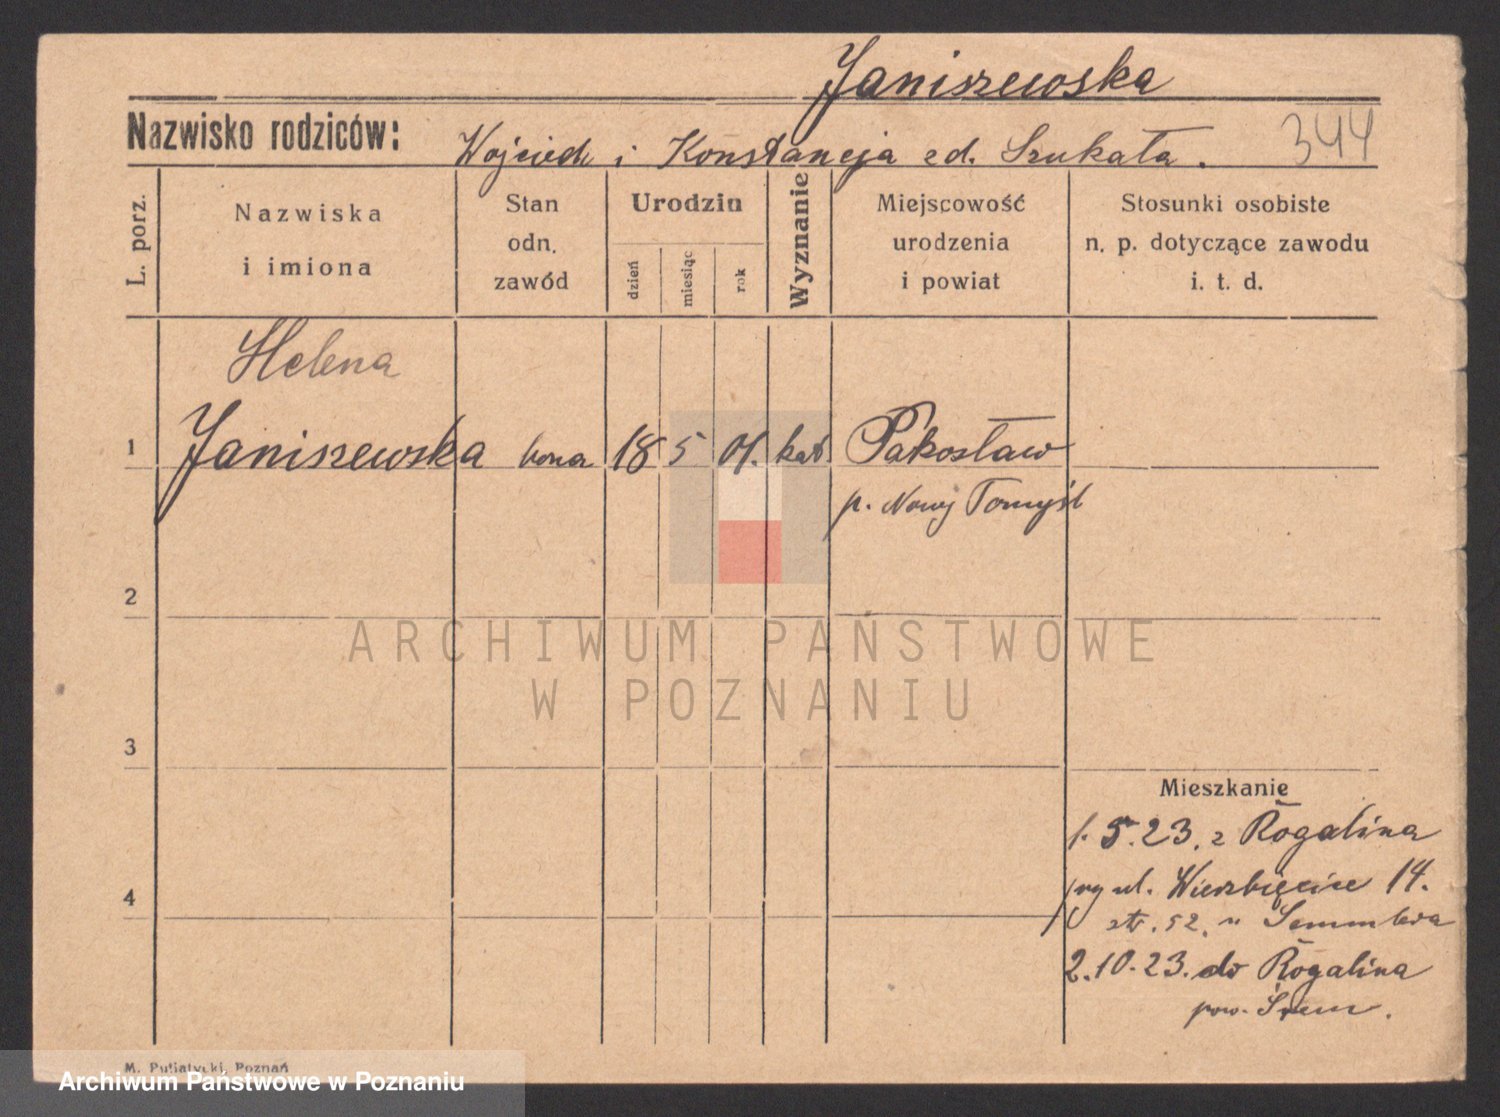 Janiszewska
Nazwisko rodziców: Wojciech i Konstancja zd. Szukała. 344
L. porz.
Nazwiska
i imiona
Stan
odn.
zawód
Urodzin
dzień
miesiąc
rok
Wyznanie
Miejscowość
urodzenia
i powiat
Stosunki osobiste
n. p. dotyczące zawodu
i. t. d.
Helena
1 Janiszewska bona 18 5 01. kat. Pakosław
p. Nowy Tomyśl
2
3
4
Mieszkanie
1.5.23. z Rogalina
ul. Wierzbięcice 14.
str. 52. u Semmlera
2.10.23. do Rogalina
pow. Śrem.
M. Putiatycki, Poznań
ARCHIWUM PAŃSTWOWE
W POZNANIU
Archiwum Państwowe w Poznaniu